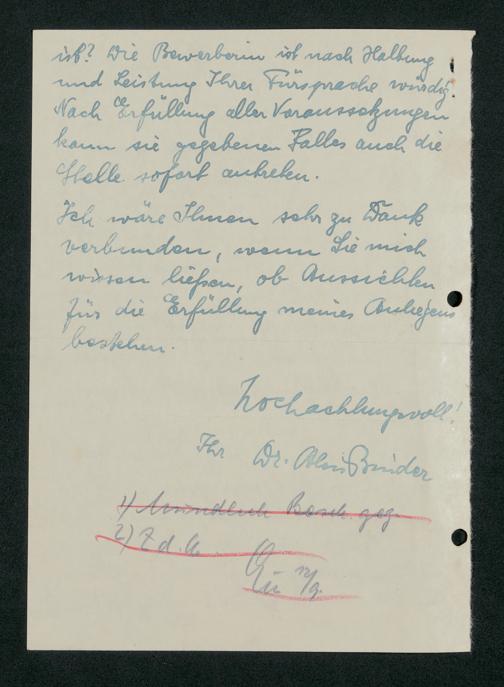 ist? Die Bewerberin ist nach Haltung
und Leistung Ihrer Fürsprache würdig.
Nach Erfüllung aller Voraussetzungen
kann sie gegebenen Falles auch die
Stelle sofort antreten.
Ich wäre Ihnen sehr zu Dank
verbunden, wenn Sie mich
wissen ließen, ob Aussichten
für die Erfüllung meines Anliegens
bestehen.
Hochachtungsvoll!
Ihr Dr. Alois Binder
1) Mündlich Besch. geg.
2) Z d. A.
12/9.